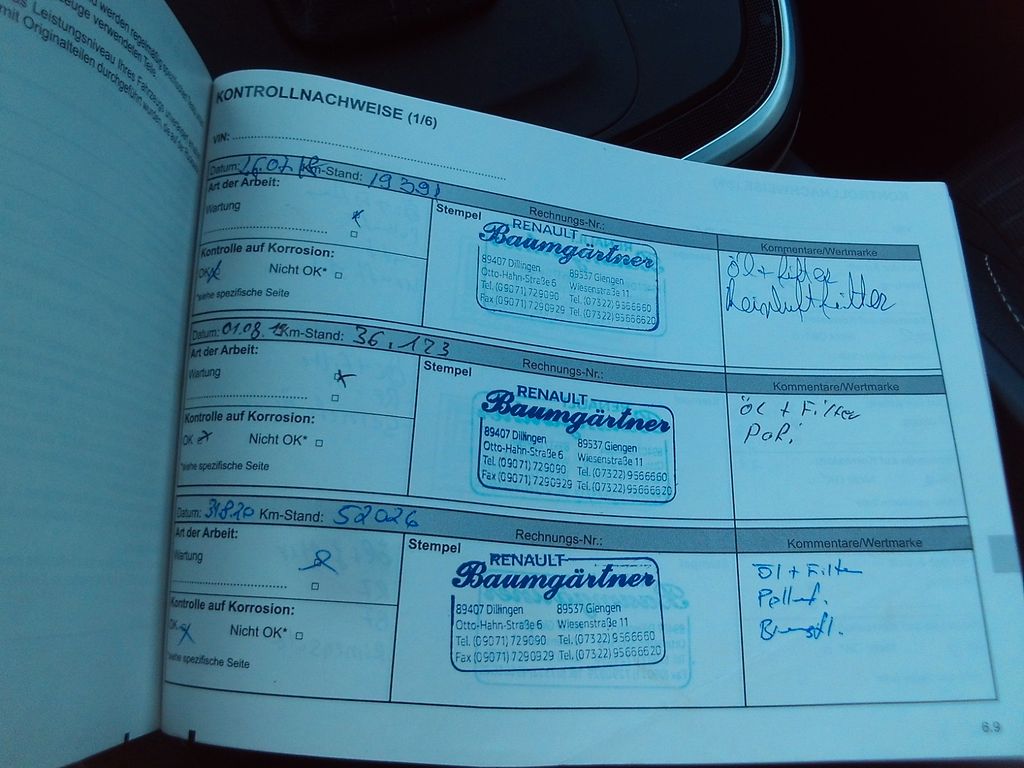 Leistungsniveau Ihres Fahrzeugs
mit Originalteilen durchgeführt
KONTROLLNACHWEISE (1/6)
VIN:
Datum: 26.07.18 Km-Stand: 19391
Art der Arbeit:
Wartung
Kontrolle auf Korrosion:
OK Nicht OK*
*siehe spezifische Seite
Stempel
Rechnungs-Nr.:
RENAULT
Baumgärtner
89407 Dillingen 89537 Giengen
Otto-Hahn-Straße 6 Wiesenstraße 11
Tel. (09071) 729090 Tel. (07322) 9566660
Fax (09071) 7290929 Tel. (07322) 95666620
Kommentare/Wertmarke
Öl + Filter
Datum: 01.08.19 Km-Stand: 36.123
Art der Arbeit:
Wartung
Kontrolle auf Korrosion:
OK Nicht OK*
*siehe spezifische Seite
Stempel
Rechnungs-Nr.:
RENAULT
Baumgärtner
89407 Dillingen 89537 Giengen
Otto-Hahn-Straße 6 Wiesenstraße 11
Tel. (09071) 729090 Tel. (07322) 9566660
Fax (09071) 7290929 Tel. (07322) 95666620
Kommentare/Wertmarke
Öl + Filter
Datum: 31.8.20 Km-Stand: 52026
Art der Arbeit:
Wartung
Kontrolle auf Korrosion:
OK Nicht OK*
*siehe spezifische Seite
Stempel
Rechnungs-Nr.:
RENAULT
Baumgärtner
89407 Dillingen 89537 Giengen
Otto-Hahn-Straße 6 Wiesenstraße 11
Tel. (09071) 729090 Tel. (07322) 9566660
Fax (09071) 7290929 Tel. (07322) 95666620
Kommentare/Wertmarke
Öl + Filter
Pollenf.
6.9